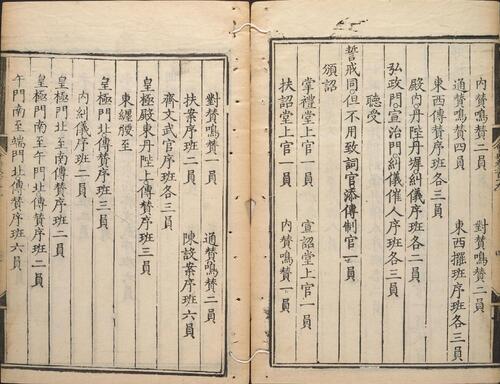 內贊鳴贊二員 對贊鳴贊二員
通贊鳴贊四員 東西擺班序班各三員
東西傳贊序班各三員
殿內丹陛丹墀糾儀序班各二員
弘政門宣治門糾儀催人序班各三員
聽受
誓戒同但不用致詞官添傳制官一員
頒詔
掌禮堂上官一員 宣詔堂上官一員
扶詔堂上官一員 內贊鳴贊一員
對贊鳴贊一員 通贊鳴贊二員
扶案序班二員 陳設案序班六員
齋文武官序班各三員
皇極殿東丹陛上傳贊序班三員
東纏腰至
皇極門北傳贊序班三員
內糾儀序班二員
皇極門北至南傳贊序班二員
皇極門南至午門北傳贊序班二員
午門南至端門北傳贊序班六員